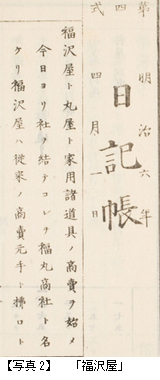 第四式
明治六年
日記帳
四月一日
福沢屋ト丸屋ト家用諸道具ノ商賣ヲ始メ
今日ヨリ社ヲ結テコレヲ福丸商社ト名
ケリ福沢屋ハ従来ノ商賣元手ト拂口ト
【写真2】 「福沢屋」